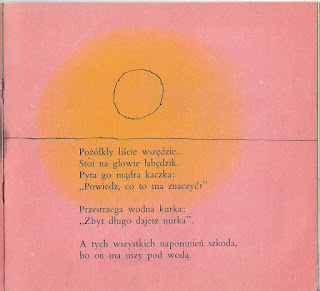 Pożółkły liście wszędzie...
Stoi na głowie łabędzik.
Pyta go mądra kaczka:
„Powiedz, co to ma znaczyć?"
Przestrzega wodna kurka:
„Zbyt długo dajesz nurka".
A tych wszystkich napomnień szkoda,
bo on ma uszy pod wodą.